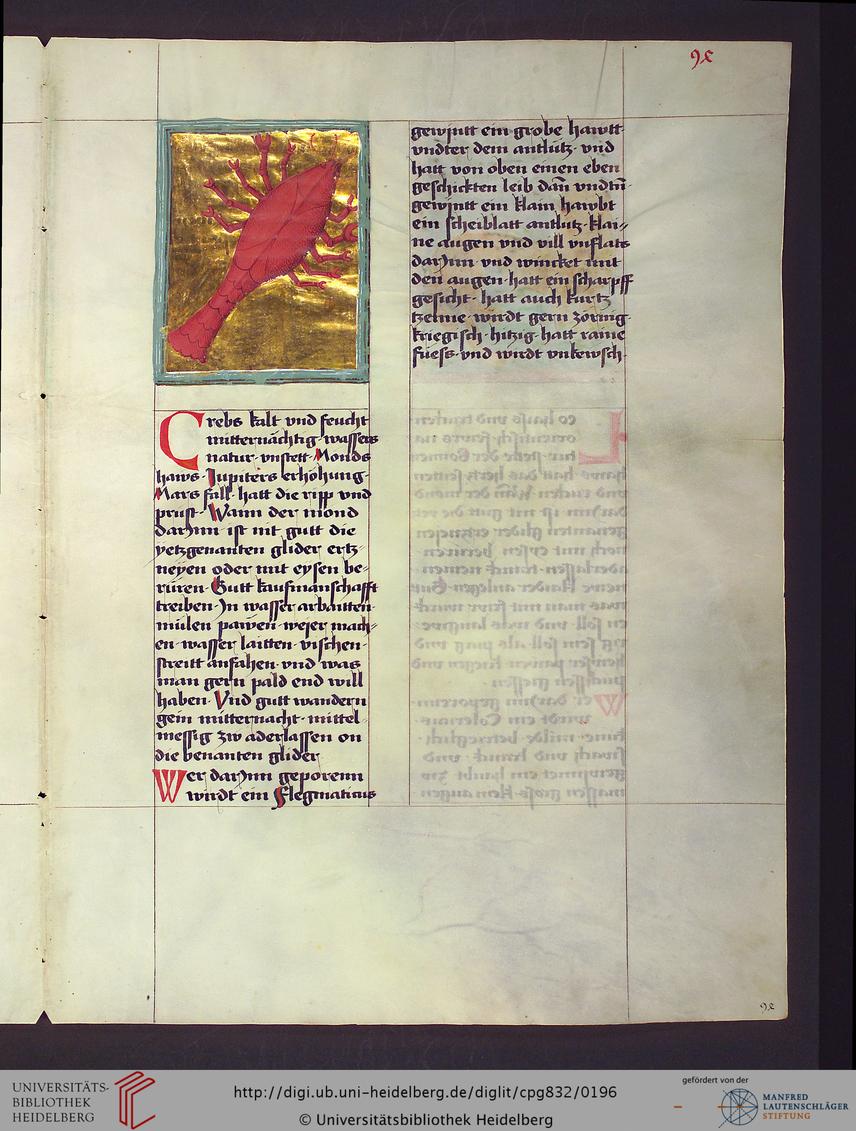 98
Crebs kalt vnd feucht
mitternächtig wassers
natur vnstett Monds
haws Jupiters erhöhung
Mars fall hatt die ripp vnd
prust Wann der mond
darjnn ist nit gutt die
yetzgenanten glider ertz⸗
neyen oder mit eysen be⸗
rüren Gutt kaufmanschafft
treiben Jn wasser arbaitten
mülen pawen wejer mach⸗
en wasser laitten vischen
streitt anfahen vnd was
man gern pald end will
haben Vnd gutt wandern
gein mitternacht mittel⸗
messig zw aderlassen on
die benanten glider
Wer darjnn geporenn
wirdt ein flegmaticus
gewjntt ein grobe hawtt
vndter dem antlütz vnd
hatt von oben einen eben
geschickten leib dan̄ vndtn̄
gewjntt ein klain hawbt
ein scheiblatt antlutz klai⸗
ne augen vnd vill vnflats
darjnn vnd wincket mit
den augen hatt ein scharpff
gesicht hatt auch kurtz
tzenne wirdt gern zörnig
kriegisch hitzig hatt raine
fuess vnd wirdt vnkewsch
98
UNIVERSITÄTS-
BIBLIOTHEK
HEIDELBERG
http://digi.ub.uni-heidelberg.de/diglit/cpg832/0196
© Universitätsbibliothek Heidelberg
gefördert von der
MANFRED
LAUTENSCHLÄGER
STIFTUNG